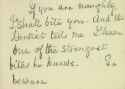 If you are naughty
I shall bite you. And the
Dentist tells me I have
one of the strongest
bites he knows. So
beware